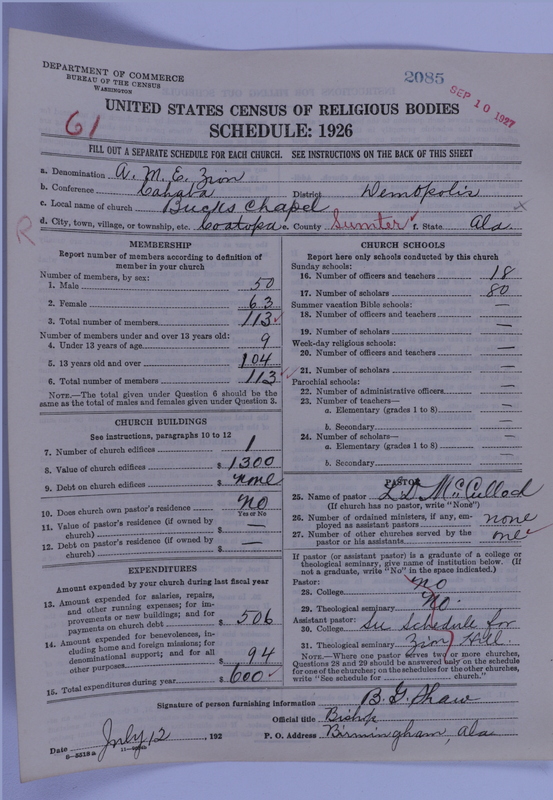 DEPARTMENT OF COMMERCE
BUREAU OF THE CENSUS
WASHINGTON
2085
SEP 10 1927
61
UNITED STATES CENSUS OF RELIGIOUS BODIES
SCHEDULE: 1926
FILL OUT A SEPARATE SCHEDULE FOR EACH CHURCH. SEE INSTRUCTIONS ON THE BACK OF THIS SHEET
a. Denomination A. M. E. Zion
b. Conference Cahaba District Demopolis
c. Local name of church Bucks Chapel x
R d. City, town, village, or township, etc. Coatopa e. County Sumter f. State Ala.
MEMBERSHIP
Report number of members according to definition of
member in your church
Number of members, by sex:
1. Male 50
2. Female 63
3. Total number of members 113
Number of members under and over 13 years old:
4. Under 13 years of age 9
5. 13 years old and over 104
6. Total number of members 113
NOTE.—The total given under Question 6 should be the
same as the total of males and females given under Question 3.
CHURCH BUILDINGS
See instructions, paragraphs 10 to 12
7. Number of church edifices 1
8. Value of church edifices $ 1300
9. Debt on church edifices $ none
10. Does church own pastor's residence? no
Yes or No
11. Value of pastor's residence (if owned by
church) $ —
12. Debt on pastor's residence (if owned by
church) $ —
EXPENDITURES
Amount expended by your church during last fiscal year
13. Amount expended for salaries, repairs,
and other running expenses; for im-
provements or new buildings; and for
payments on church debt $ 506
14. Amount expended for benevolences, in-
cluding home and foreign missions; for
denominational support; and for all
other purposes $ 94
15. Total expenditures during year $ 600
CHURCH SCHOOLS
Report here only schools conducted by this church
Sunday schools:
16. Number of officers and teachers 18
17. Number of scholars 80
Summer vacation Bible schools:
18. Number of officers and teachers —
19. Number of scholars —
Week-day religious schools:
20. Number of officers and teachers —
21. Number of scholars —
Parochial schools:
22. Number of administrative officers —
23. Number of teachers—
a. Elementary (grades 1 to 8) —
b. Secondary —
24. Number of scholars—
a. Elementary (grades 1 to 8) —
b. Secondary —
PASTOR
25. Name of pastor L D McCulloch
(If church has no pastor, write "None")
26. Number of ordained ministers, if any, em-
ployed as assistant pastors none
27. Number of other churches served by the
pastor or his assistants one
If pastor (or assistant pastor) is a graduate of a college or
theological seminary, give name of institution below. (If
not a graduate, write "No" in the space indicated.)
Pastor:
28. College no
29. Theological seminary No.
Assistant pastor:
30. College See Schedule for
31. Theological seminary Zion Hill
NOTE.—Where one pastor serves two or more churches,
Questions 28 and 29 should be answered only on the schedule
for one of the churches; on the schedules for the other churches,
write "See schedule for church."
Signature of person furnishing information B. G. Shaw
Official title Bishop
Date July 12, 192 P. O. Address Birmingham, Ala